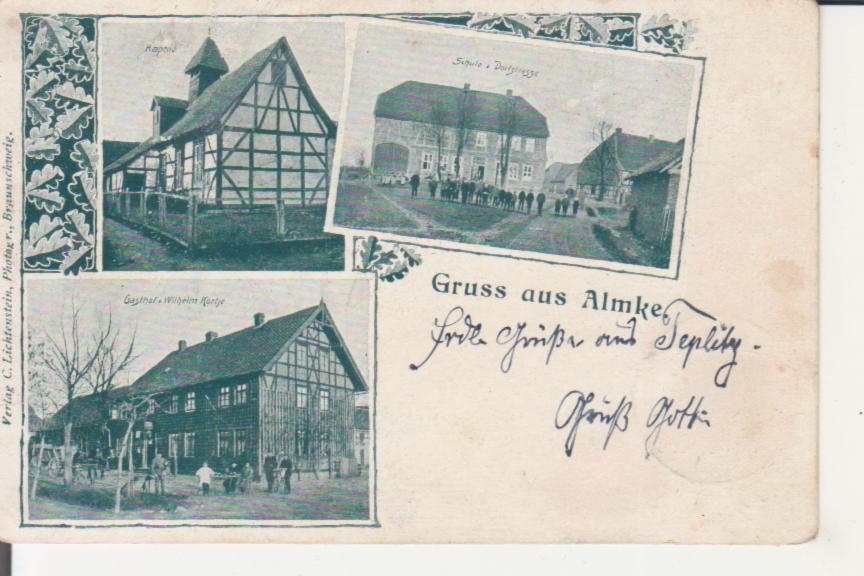 Kapelle
Schule u. Dorfstrasse
Gasthof v. Wilhelm Kortje
Gruss aus Almke
Frdl. Grüße aus Teplitz.
Grüß Gott
Verlag C. Lichtenstein, Photogr., Braunschweig.